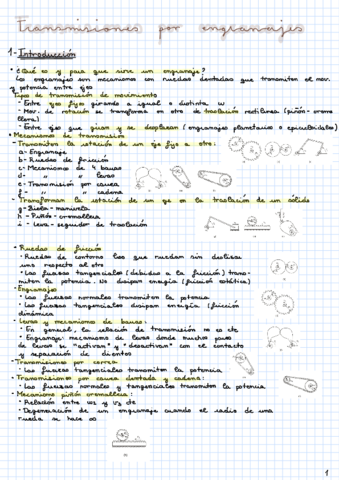 Transmisiones por engranajes
1- Introducción
• ¿Qué es y para que sirve un engranaje?
los engranajes son mecanismos con ruedas dentadas que transmiten el mov.
y potencia entre ejes
Tipos de transmisión de movimiento
- Entre ejes fijos girando a igual o distinta w
- Mov. de rotación se transforma en otro de traslación rectilínea (piñón-crema
llera)
- Entre ejes que giran y se desplazan (engranajes planetarios o epicicloidales)
• Mecanismos de transmisión
- Transmiten la rotación de un eje fijo a otro:
a- Engranaje
b- Ruedas de fricción
c- Mecanismos de 4 barras
d- " " levas
e- Transmisión por correa
f- " " cadena
- Transforman la rotación de un eje en la traslación de un sólido
g- Biela - manivela
h- Piñón - cremallera
i- Leva - seguidor de traslación
- Ruedas de fricción
• Ruedas de contorno liso que ruedan sin deslizar
una respecto al otro
• Las fuerzas tangenciales (debidas a la fricción) trans-
miten la potencia. No disipan energía (fricción estática)
- Engranajes
• Las fuerzas normales transmiten la potencia
• Las fuerzas tangenciales disipan energía (fricción
dinámica)
- Levas y mecanismo de barras:
• En general, la relación de transmisión no es cte
• Engranaje: mecanismo de levas donde muchos pares
de levas se "activan" y "desactivan" con el contacto
y separación de dientes
- Transmisiones por correa:
• Las fuerzas tangenciales transmiten la potencia
- Transmisiones por correa dentada y cadena:
• Las fuerzas normales y tangenciales transmiten la potencia
- Mecanismo piñón cremallera:
• Relación entre w2 y v3 cte
• Degeneración de un engranaje cuando el radio de una
rueda se hace ∞
1